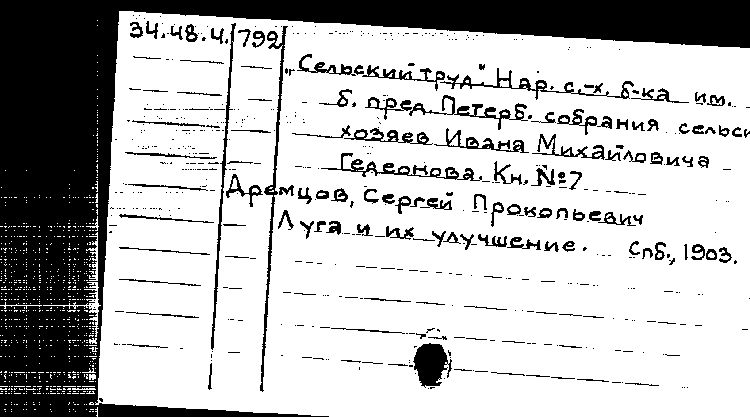 34.48.4. 792
„Сельский труд". Нар. с.-х. б-ка им.
б. пред. Петерб. собрания сельск
хозяев Ивана Михайловича
Гедеонова. Кн. №7
Дремцов, Сергей Прокопьевич
Луга и их улучшение. Спб., 1903.